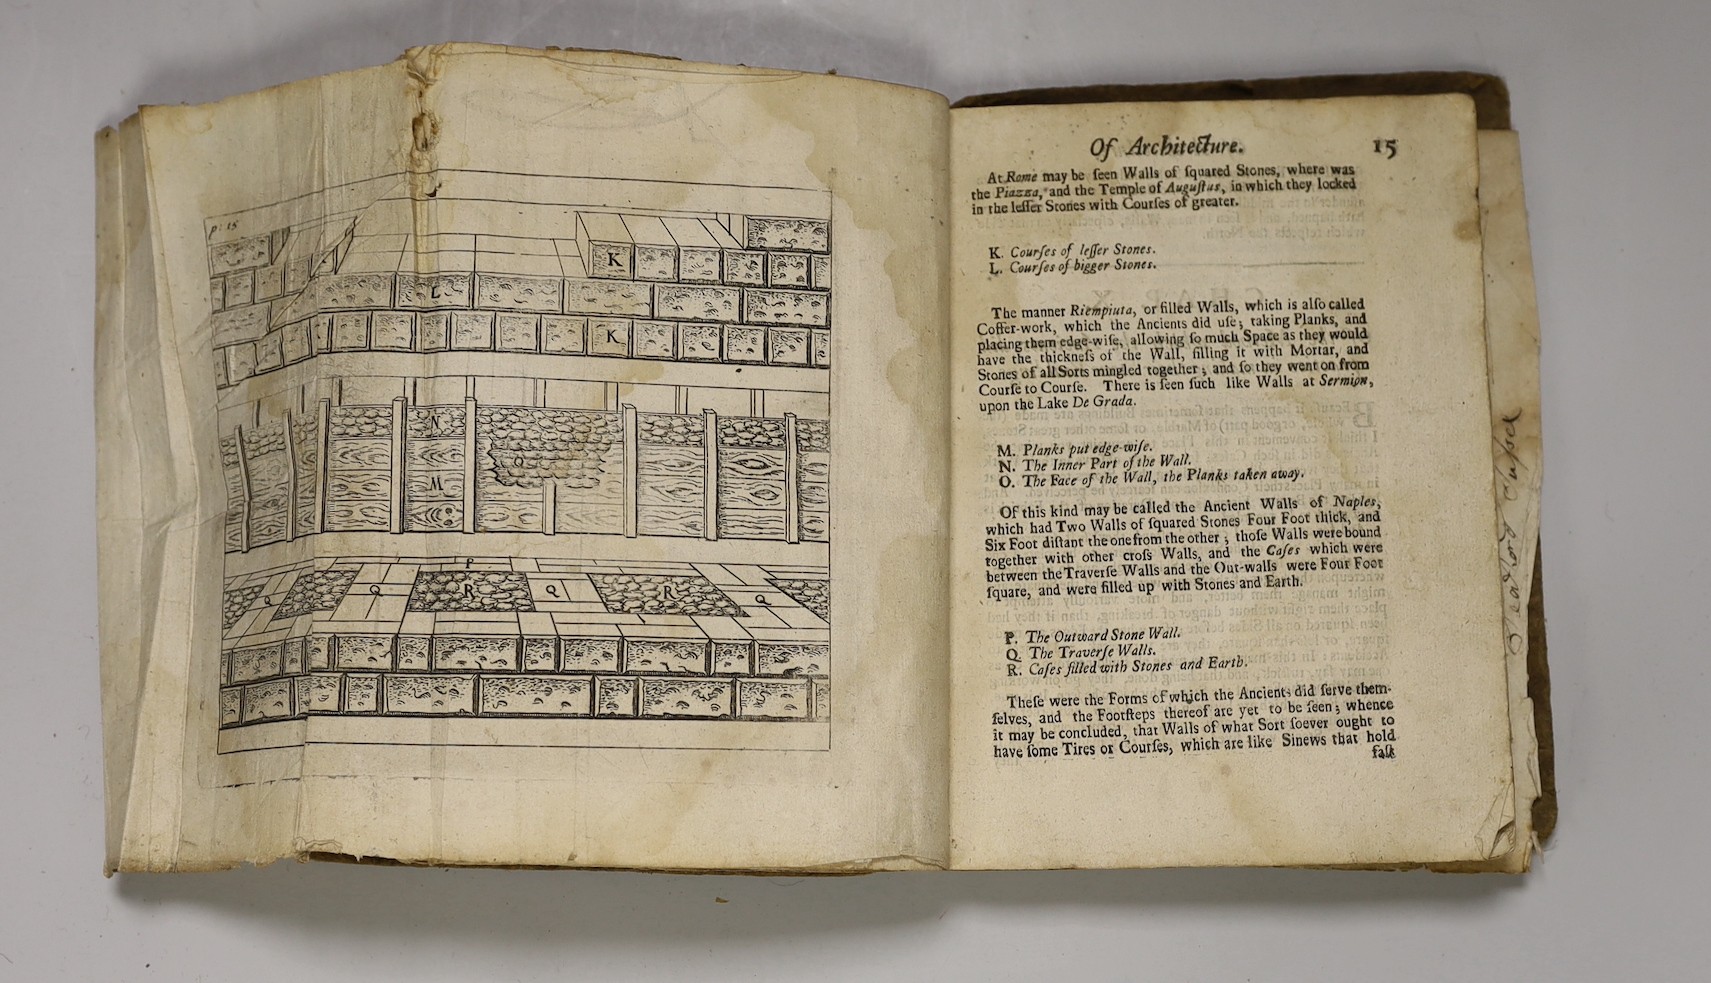 p: 15
K
L
K
N
O
M
P
Q
Q
R
Q
R
Q
Of Architecture. 15
At Rome may be ſeen Walls of ſquared Stones, where was
the Piazza, and the Temple of Auguſtus, in which they locked
in the leſſer Stones with Courſes of greater.
K. Courſes of leſſer Stones.
L. Courſes of bigger Stones.
The manner Riempiuta, or filled Walls, which is alſo called
Coffer-work, which the Ancients did uſe; taking Planks, and
placing them edge-wiſe, allowing ſo much Space as they would
have the thickneſs of the Wall, filling it with Mortar, and
Stones of all Sorts mingled together; and ſo they went on from
Courſe to Courſe. There is ſeen ſuch like Walls at Sermion,
upon the Lake De Grada.
M. Planks put edge-wiſe.
N. The Inner Part of the Wall.
O. The Face of the Wall, the Planks taken away.
Of this kind may be called the Ancient Walls of Naples,
which had Two Walls of ſquared Stones Four Foot thick, and
Six Foot diſtant the one from the other; thoſe Walls were bound
together with other croſs Walls, and the Caſes which were
between the Traverſe Walls and the Out-walls were Four Foot
ſquare, and were filled up with Stones and Earth.
P. The Outward Stone Wall.
Q. The Traverſe Walls.
R. Caſes filled with Stones and Earth.
Theſe were the Forms of which the Ancients did ſerve them-
ſelves, and the Footſteps thereof are yet to be ſeen; whence
it may be concluded, that Walls of what Sort ſoever ought to
have ſome Tires or Courſes, which are like Sinews that hold
faſt